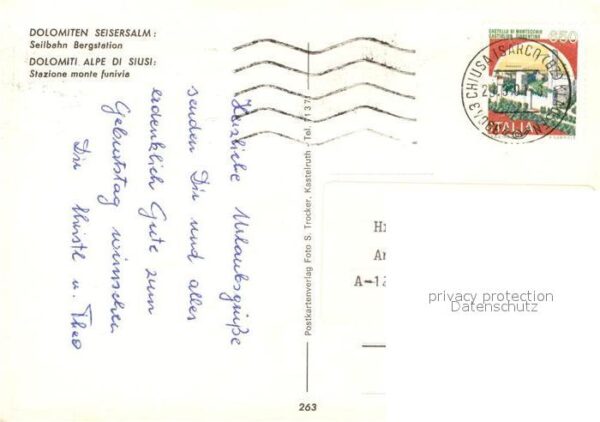 DOLOMITEN SEISERSALM:
Seilbahn Bergstation
DOLOMITI ALPE DI SIUSI:
Stazione monte funivia
Herzliche Urlaubsgrüße
senden Dir und alles
erdenklich Gute zum
Geburtstag wünschen
Dir Christl u. Theo
Postkartenverlag Foto S. Trocker, Kastelruth - Tel.
263
CASTELLO DI MONTECCHIO
CASTIGLION FIORENTINO
650
ITALIA
39043 CHIUSA ISARCO (BZ)
A-12
privacy protection
Datenschutz